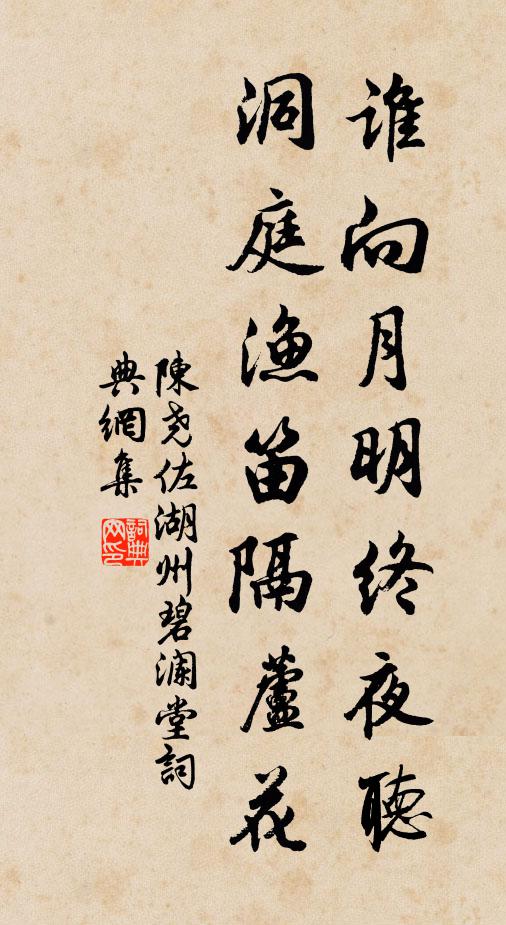 誰向月明終夜聽
洞庭漁笛隔蘆花
陳尧佐湖州碧澜堂詞
典網集
詞典网印